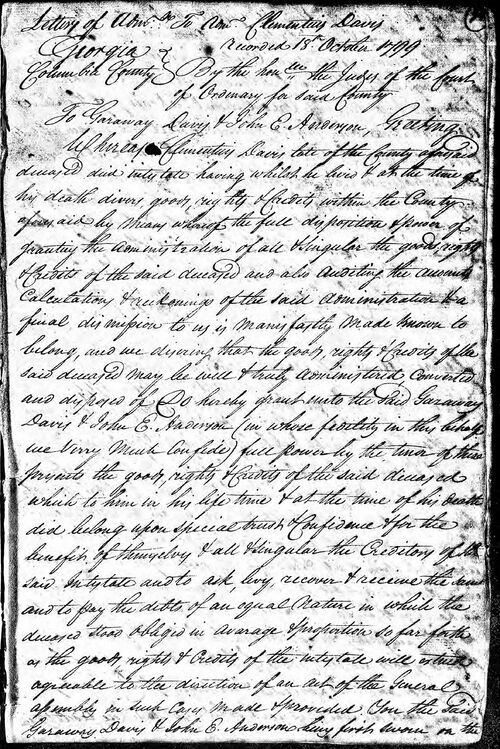 Letters of Admn. To Clementius Davis
recorded 18th October 1799
Georgia
Columbia County } By the honble. the Judges of the Court
of Ordinary for Said County
To Garaway Davis & John E. Anderson, Greeting
Whereas Clementius Davis, late of the County aforesaid
deceased died intestate having whilst he lived & at the time of
his death divers goods, rights & Credits within the County
aforesaid by means whereof the full disposition & power of
granting the Administration of all & Singular the goods, rights
& Credits of the said deceased and also Auditing the accounts
Calculations & reckonings of the said Administration & a
final dismission to us is manyfastly Made known to
belong, and we desiring that the goods, rights & Credits of the
said deceased may be well & truly administered, Converted
and disposed of Do hereby grant unto the Said Garaway
Davis & John E. Anderson (in whose fedility in this behalf
we Verry Much Confide) full power by the tenor of these
presents the goods, rights & Credits of the said deceased
which to him in his life time & at the time of his Death
did belong upon special trust & Confidence & for the
benefit of themselves & all & Singular the Creditors of the
said intestate and to ask, levy, recover & receive the Same
and to pay the debts of an equal Nature in which the
deceased stood obliged in average & proportion so far forth
as the goods, rights & Credits of the intestate will extend
agreeable to the direction of an act of the General
assembly in such Cases made & provided You the Said
Garaway Davis & John E. Anderson being first sworn on the